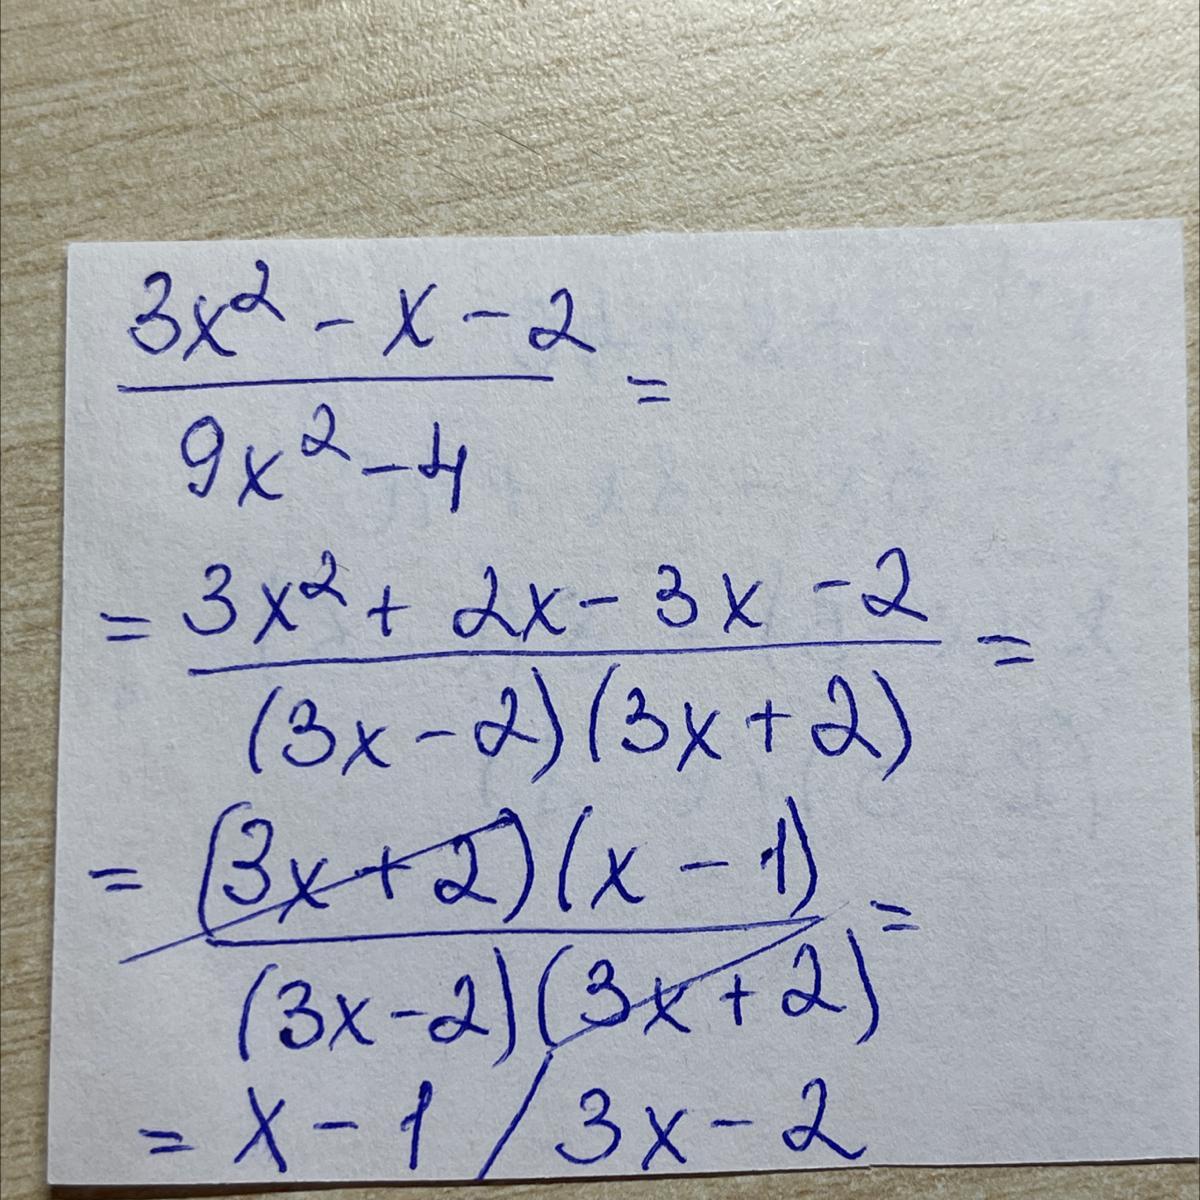 3x² - x - 2
9x² - 4 =
= 3x² + 2x - 3x - 2 =
(3x - 2)(3x + 2)
= (3x + 2)(x - 1) =
(3x - 2)(3x + 2)
= x - 1 / 3x - 2